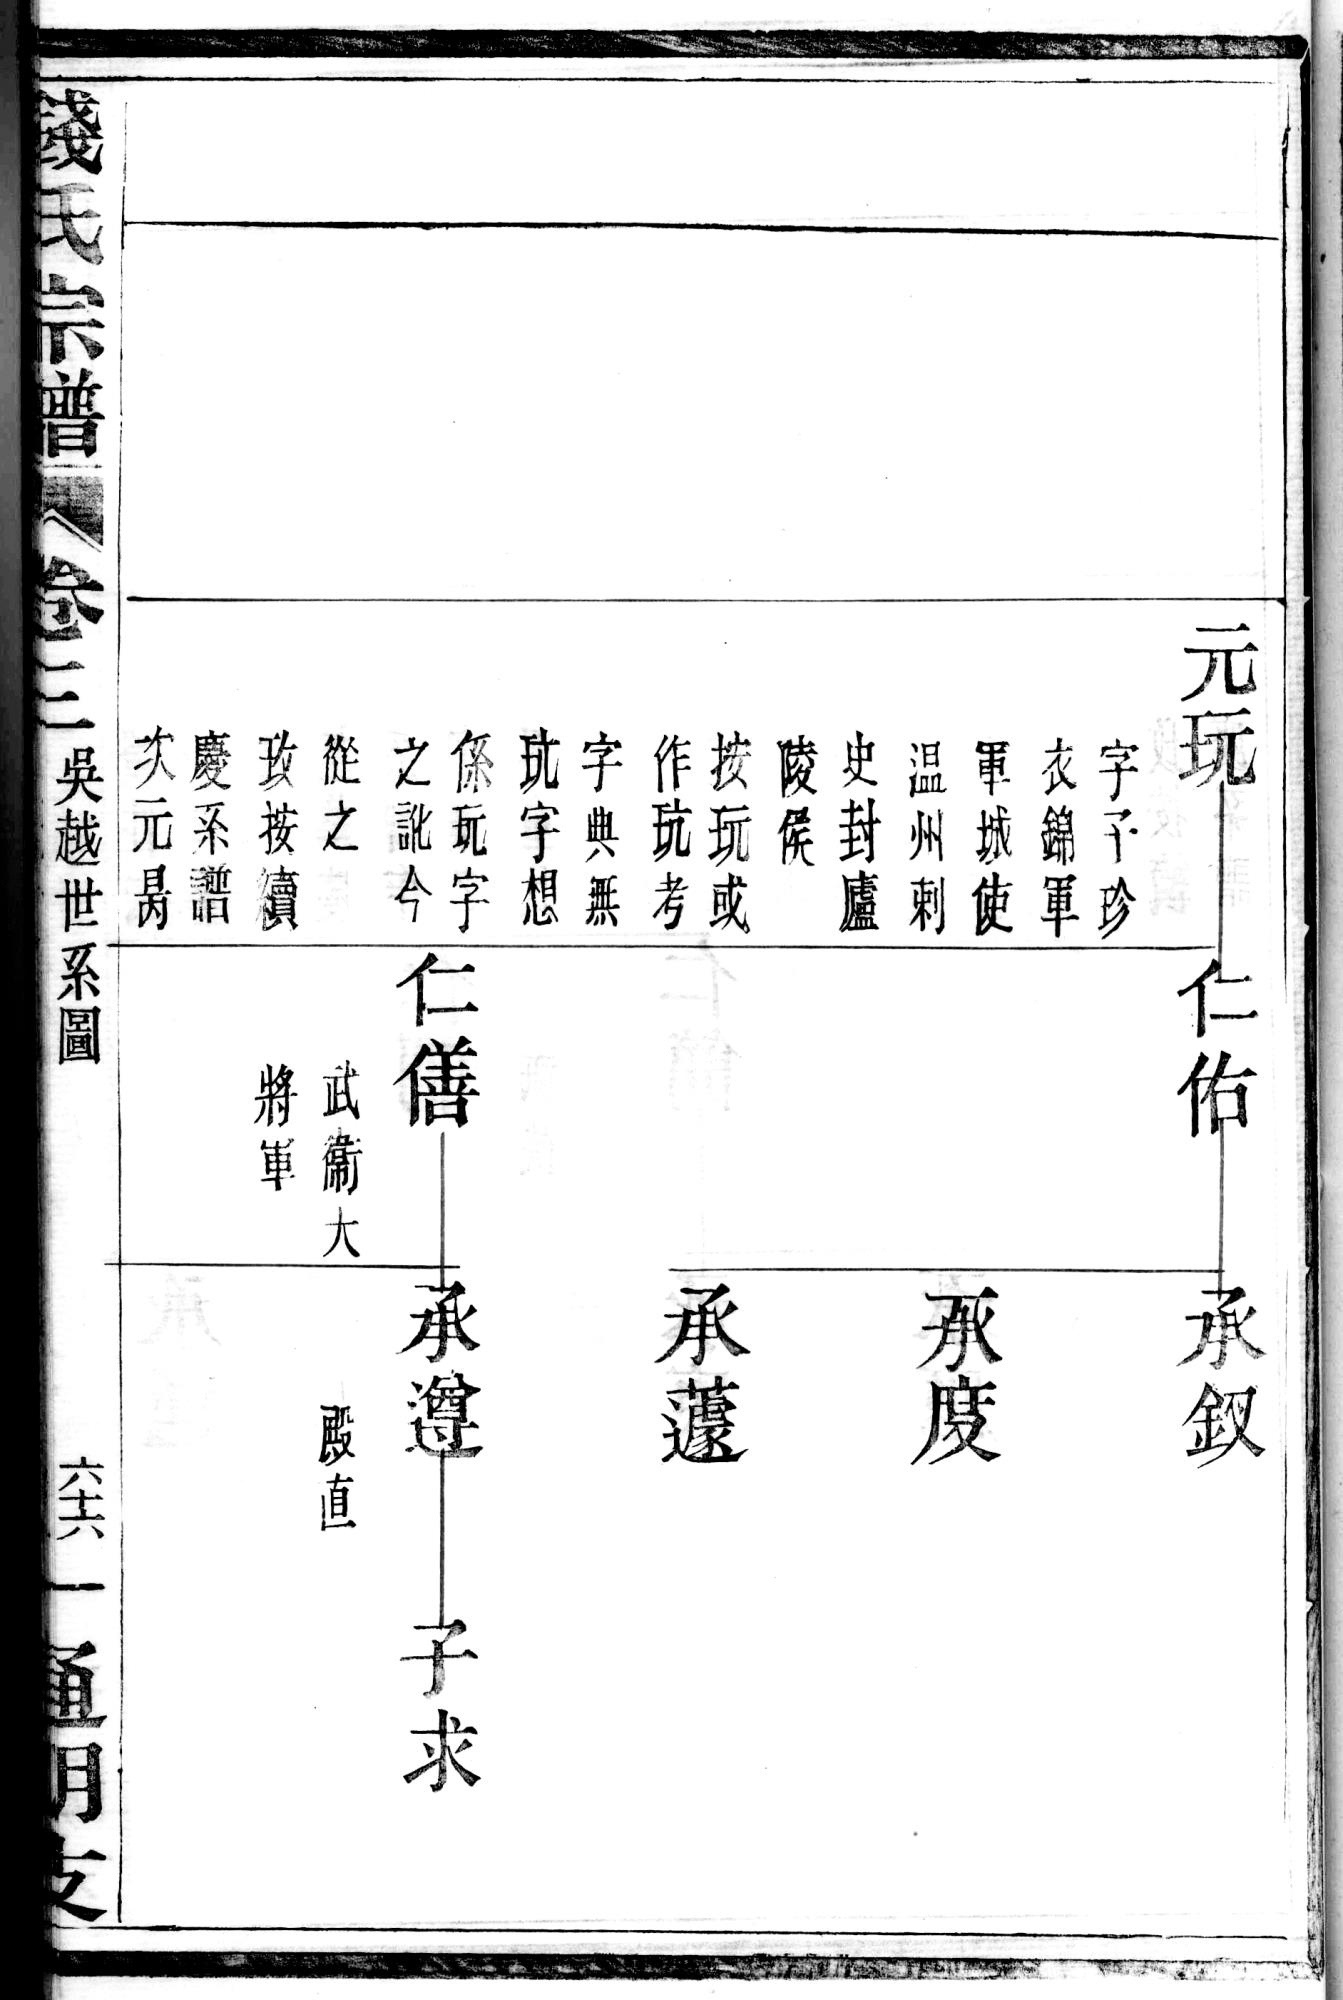 元玩
字予珍
衣錦軍
軍城使
温州刺
史封廬
陵侯
按玩或
作玧考
字典無
玧字想
係玩字
之訛今
從之
攷按續
慶系譜
次元昺
仁佑
仁僐
武衞大
將軍
承釵
承度
承蘧
承遵
殿直
子求
錢氏宗譜
卷三
吳越世系圖
六十六
一
通明支